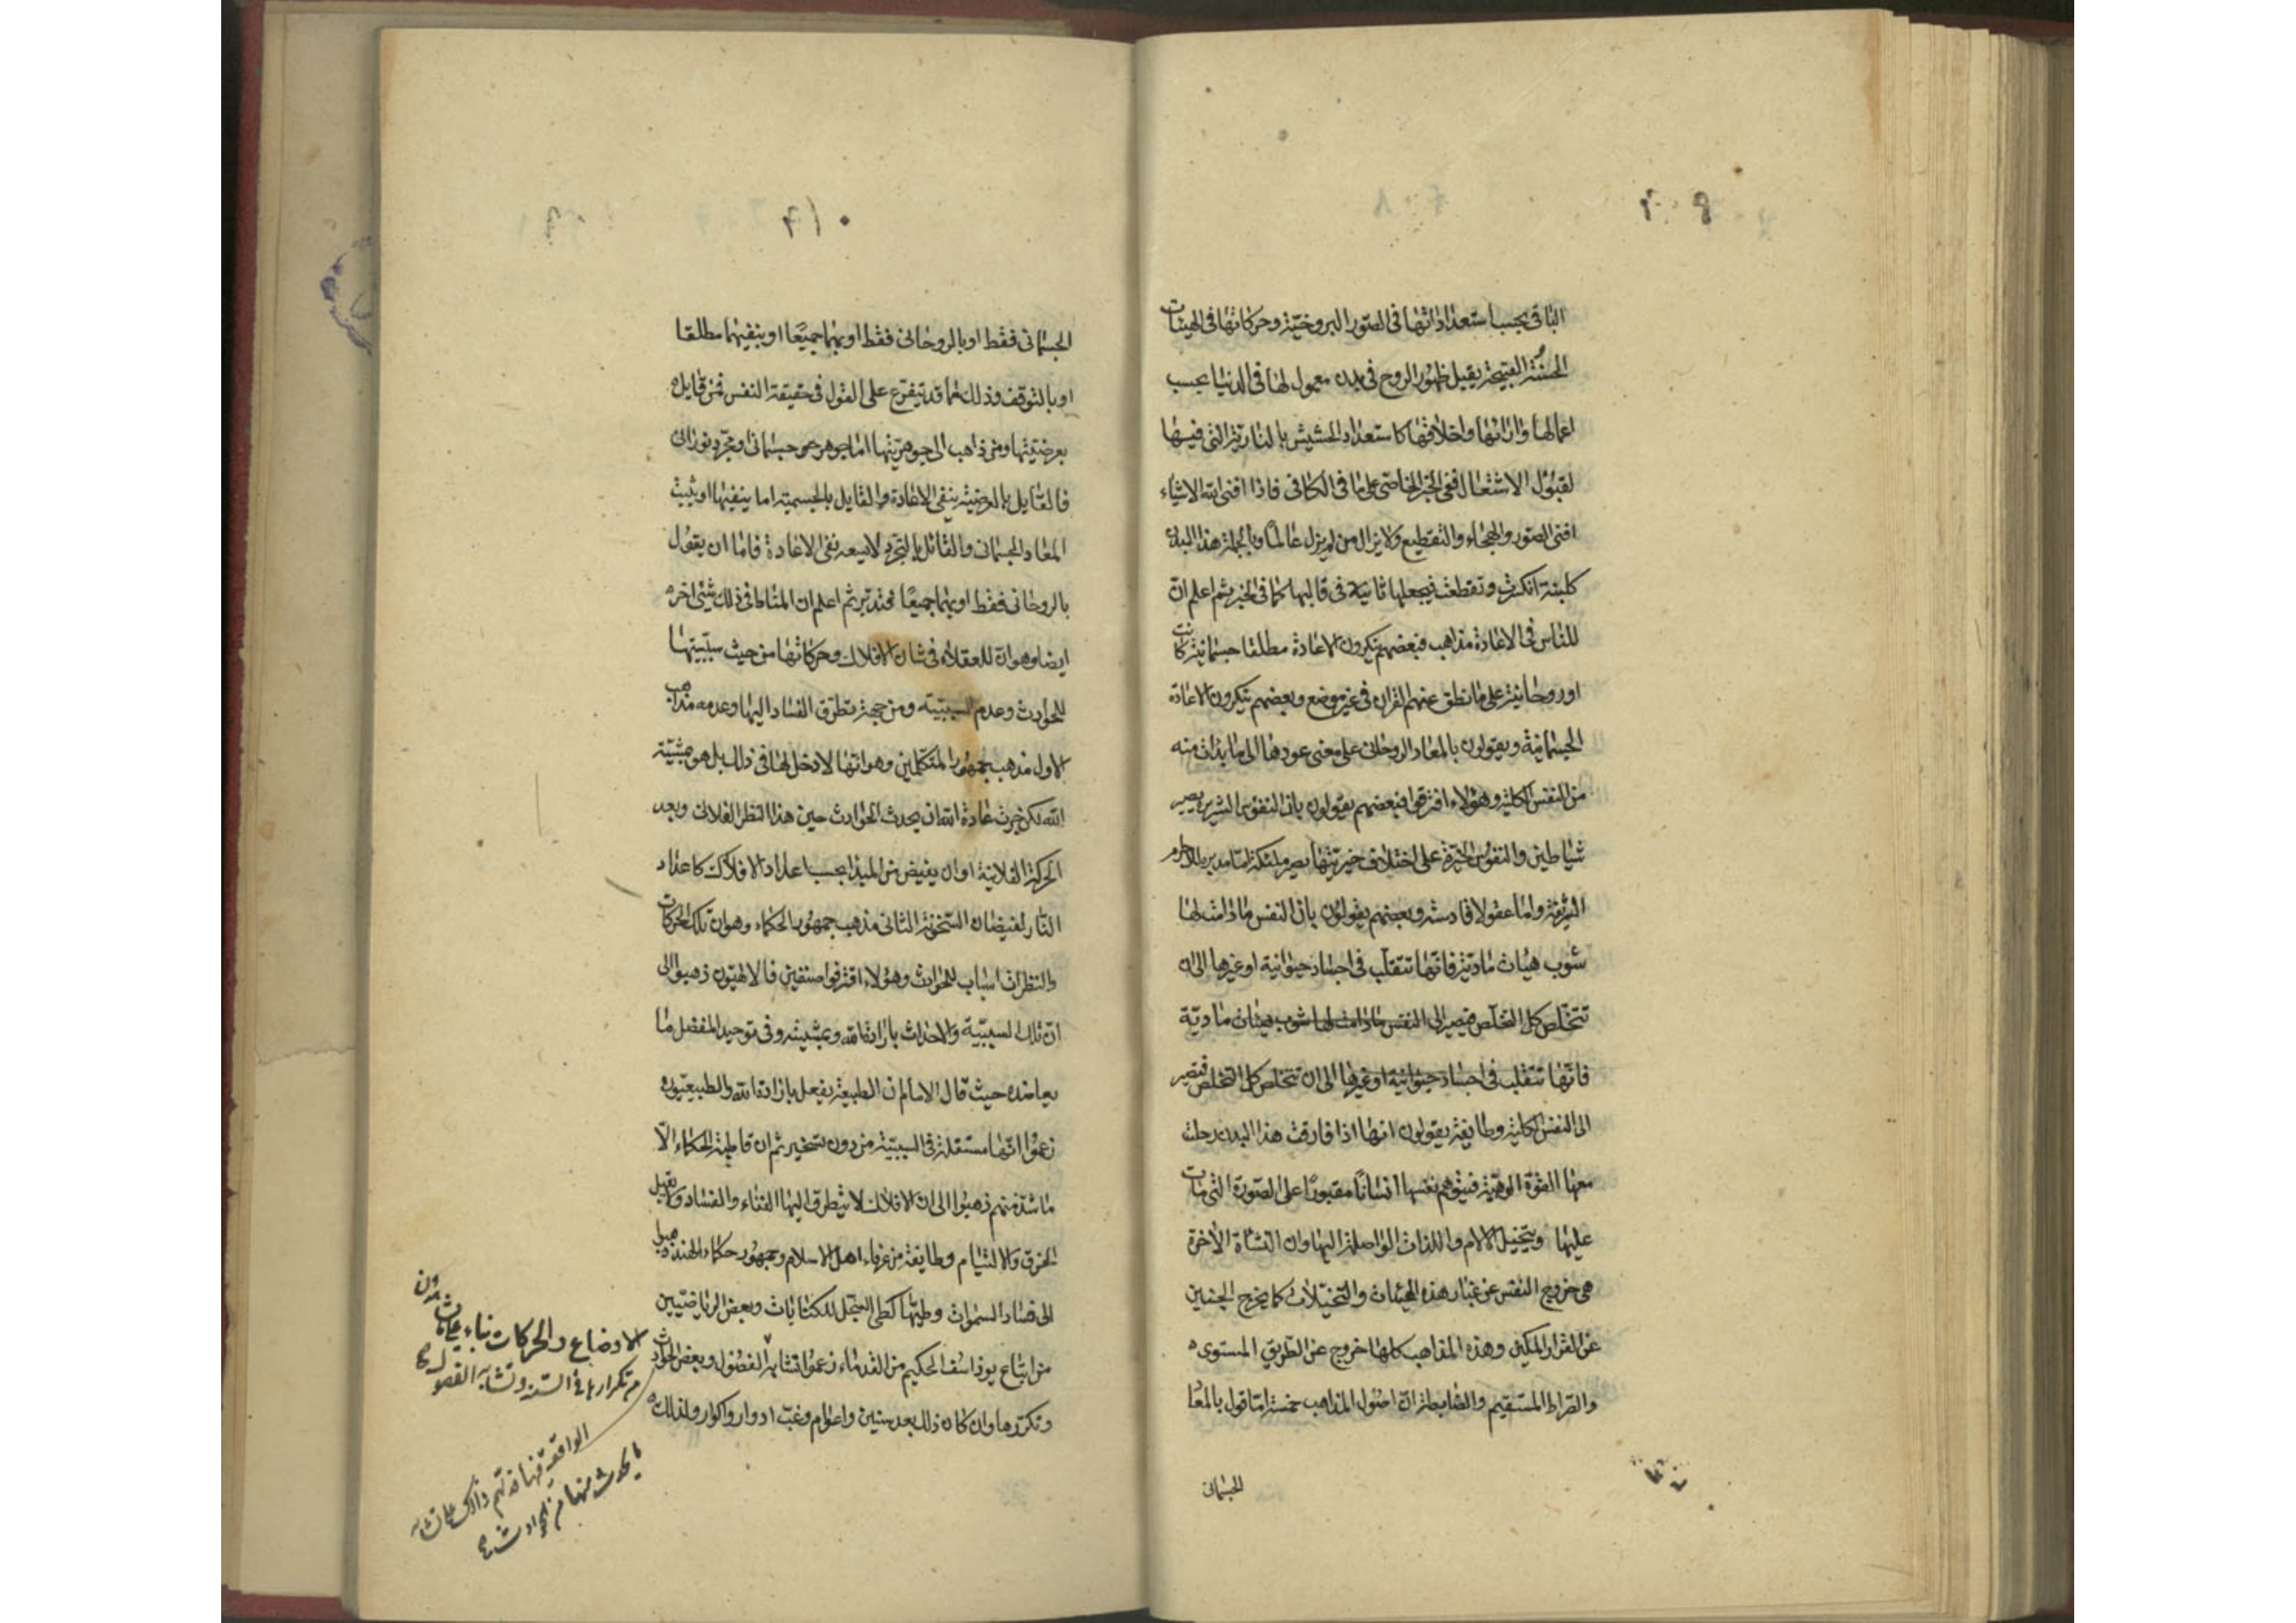 ٢٠٩
الباقی بحسب استعداداتها فی الصور البروخیة وحرکاتها فی الهیئات
الحسنة القبیحة یقبل ظهور الروح فی بدن معمول لها فی الدنیا بحسب
اعمالها واراتها واخلاقها کاستعداد الحشیش بالناریة التی فیها
لقبول الاشتعال ففی الخبر الخاصی علی ما فی الکافی فاذا افنی الله الاشیاء
افنی الصور والهجاء والتقطیع ولا یزال من لم یزل عالما وبالجملة هذا البدن
کلبنة انکسرت وتقطعت فیجعلها ثانیة فی قالبها کما فی الخبر ثم اعلم ان
للناس فی الاعادة مذاهب فبعضهم ینکرون الاعادة مطلقا جسمانیة کانت
او روحانیة علی ما نطق عنهم القران فی غیر موضع وبعضهم ینکرون الاعادة
الجسمانیة ویقولون بالمعاد الروحانی علی معنی عودها الی ما بدات منه
من النفس الکلیة وهؤلاء افترقوا فبعضهم یقولون بان النفوس الشریرة یصیر
شیاطین والنفوس الخیرة علی اختلاف خیریتها یصیر ملئکة اما مدبرة للاجرام
الشریفة واما عقولا قادسة وبعضهم یقولون بان النفس ما دامت لها
شوب هیئات مادیة فانها تتقلب فی اجساد حیوانیة او غیرها الی ان
تتخلص کل التخلص فیصیر الی النفس ما دامت لها شوب هیئات مادیة
فانها تتقلب فی اجساد حیوانیة او غیرها الی ان تتخلص کل التخلص فتصیر
الی النفس الکلیة وطایفة یقولون انها اذا فارقت هذا البدن رحلت
معها القوة الوهمیة فیتوهم نفسها انسانا مقبورا علی الصورة التی مات
علیها ویتخیل الالام واللذات الواصلة الیها وان النشاة الاخرة
هی خروج النفس عن غبار هذه الهیئات والتخیلات کما یخرج الجنین
عن القرار المکین وهذه المذاهب کلها خروج عن الطریق المستوی
والصراط المستقیم والضابطة ان اصول المذاهب خمسة اما قول بالمعا
الجسمانی
٢١٠
الجسمانی فقط او بالروحانی فقط او بهما جمیعا او بنفیهما مطلقا
او بالتوقف وذلک مما قد یتفرع علی القول فی حقیقة النفس فمن قایل
بعرضیتها ومن ذاهب الی جوهریتها اما جوهر جسمانی او مجرد نورانی
فالقایل بالعرضیة ینفی الاعادة والقایل بالجسمیة اما ینفیها او یثبت
المعاد الجسمانی والقائل بالتجرد لا یسعه نفی الاعادة فاما ان یقول
بالروحانی فقط او بهما جمیعا فتدبر ثم اعلم ان المناط فی ذلک شیئ اخر
ایضا وهو ان للعقلاء فی شان الافلاک وحرکاتها من حیث سببیتها
للحوادث وعدم السببیة ومن جهة تطرق الفساد الیها وعدمه مذاهب
الاول مذهب جمهور المتکلمین وهو انها لا دخل لها فی ذلک بل هو بمشیة
الله لکن جرت عادة الله ان یحدث الحوادث حین هذا النظر الفلانی وبعد
الحرکة الفلانیة او ان یفیض من المبدا بحسب اعداد الافلاک کاعداد
النار لفیضان السخونة الثانی مذهب جمهور الحکماء وهو ان تلک الحرکات
والنظرات اسباب للحوادث وهؤلاء افترقوا صنفین فالالهیون ذهبوا الی
ان تلک السببیة والاحداث بارادة الله وبمشیته وفی توحید المفضل ما
یعاضده حیث قال الامام ان الطبیعة یفعل بارادة الله والطبیعیون
زعموا انها مستقلة فی السببیة من دون تسخیر ثم ان قاطبة الحکماء الا
ما شذ منهم ذهبوا الی ان الافلاک لا یتطرق الیها الفناء والفساد ولا تقبل
الخرق والالتیام وطایفة من عرفاء اهل الاسلام وجمهور حکماء الهند ذهبوا
الی فساد السموات وطیها کطی السجل للکتابات وبعض الریاضیین
من اتباع یوذاسف الحکیم من القدماء زعموا تشابه الفصول وبعض الحوادث
وتکررها وان کان ذلک بعد سنین واعوام وغب ادوار واکوار ولذلک
الاوضاع والحرکات بناء علی ما یشاهدون
من تکرارها فی السنة وتشابه الفصول